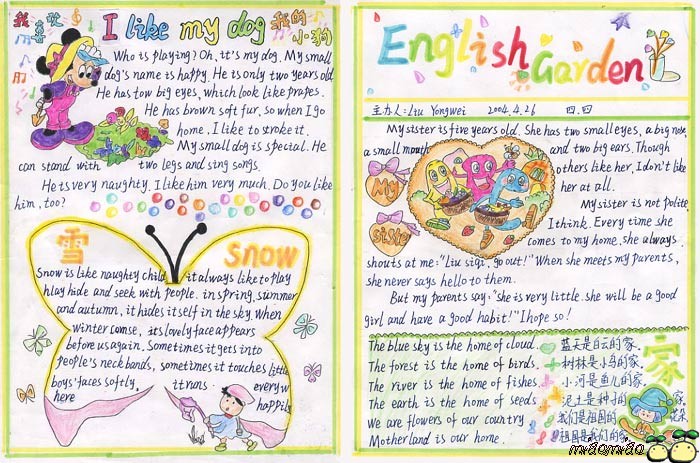 我喜欢 I like my dog 我的小狗
Who is playing? Oh, it's my dog. My small
dog's name is happy. He is only two years old.
He has tow big eyes, which look like prapes.
He has brown soft fur, so when I go
home. I like to stroke it.
My small dog is special. He
can stand with two legs and sing songs.
He is very naughty. I like him very much. Do you like
him, too?
雪 Snow
Snow is like naughty child it always like to play
hlay hide and seek with people. in spring, summer
and autumn, it hides itself in the sky. When
winter comse, its lovely face appears
before us again. Sometimes it gets into
people's neck bands, sometimes it touches little
boys' faces softly, it runs everyw
here happily
English Garden
主办人: Liu Yongwei 2004.4.26 四.四
My sister is five years old. She has two small eyes, a big nose,
a small mouth and two big ears. Though
others like her, I don't like
her at all.
My Sister
My sister is not polite,
I think. Every time she
comes to my home, she always
shouts at me: "Liu siqi, go out!" When she meets my parents,
she never says hello to them.
But my parents say: "she is very little. she will be a good
girl and have a good habit!" I hope so!
The blue sky is the home of cloud. 蓝天是白云的家.
The forest is the home of birds. 树林是小鸟的家.
The river is the home of fishes. 小河是鱼儿的家.
The earth is the home of seeds. 泥土是种子的家.
We are flowers of our country. 我们是祖国的花朵.
Motherland is our home. 祖国是我们的家.
家
mãomão